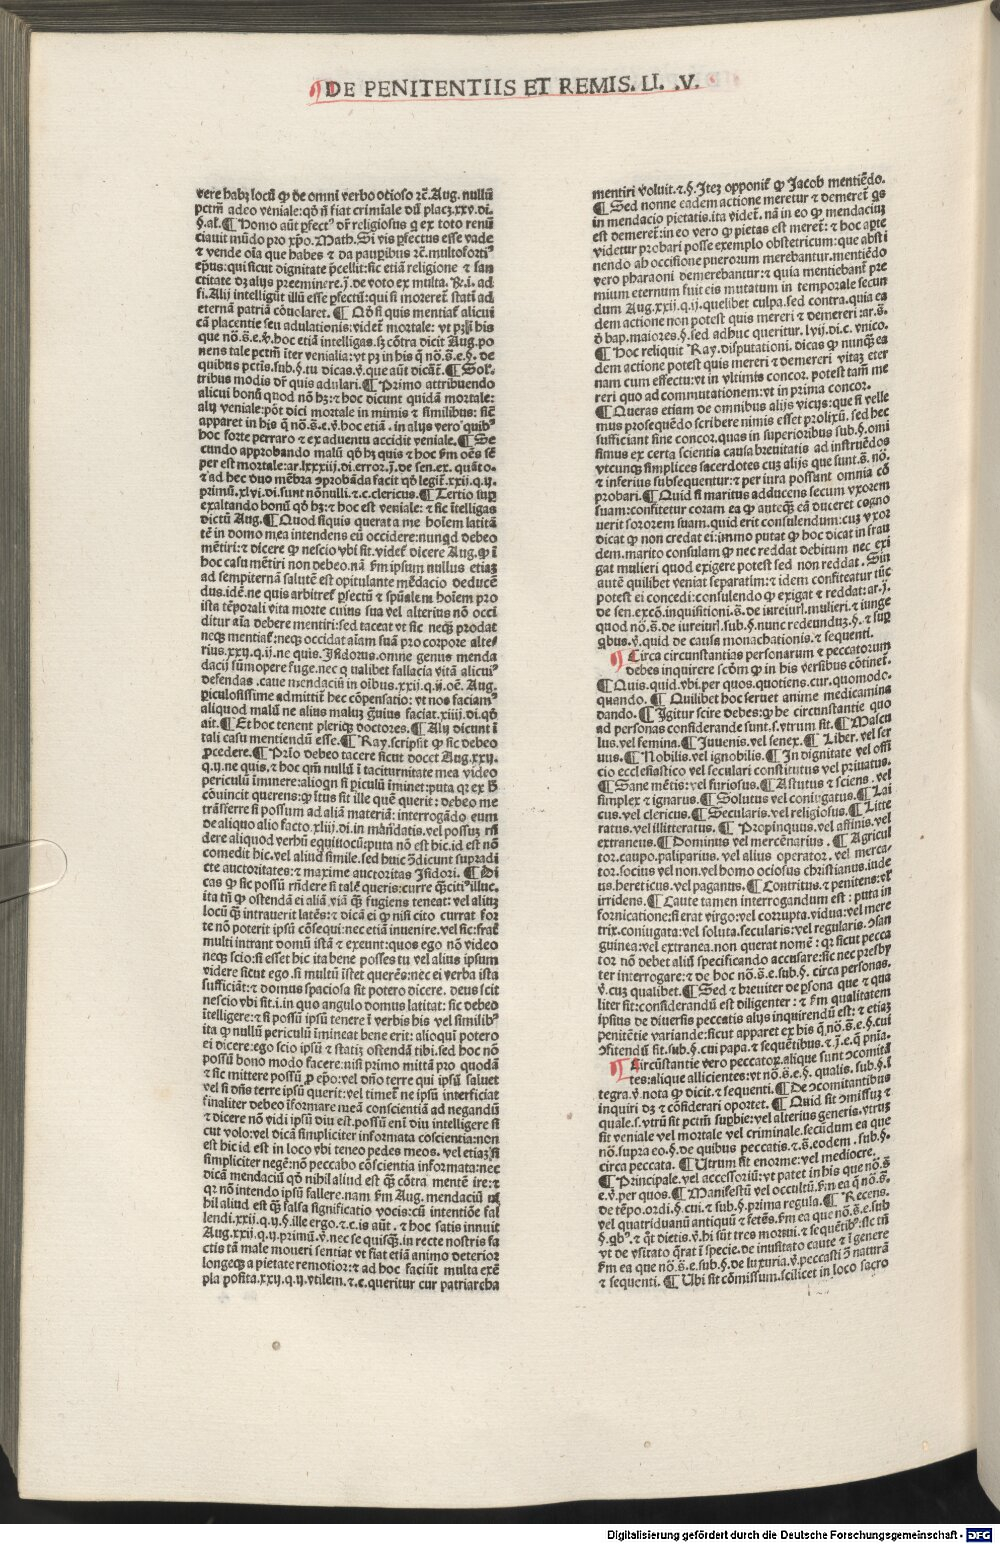 DE PENITENTIIS ET REMIS. LI. .V.
vere habꝫ locū ꝙ de omni verbo otioso rc̄. Aug. nullū
pctm̄ adeo veniale: qd̓ nō fiat criminale dū placꝫ. xxv. di.
§. al̓. ¶ Homo aūt ꝑfect⁹ dr̄ religiosus q ex toto renū
ciauit mūdo pro xp̄o. Math. Si vis ꝑfectus esse vade
⁊ vende oīa que habes ⁊ da pauꝑibus rc̄. multofortī⁹
ep̄us: qui sicut dignitate p̄cellit: sic etiā religione ⁊ san
ctitate dꝫ alijs preeminere. j̄. de voto ex multa. R. i. ad
fi. Alij intelligūt illū esse ꝑfectū: qui si moreret̄ statī ad
eternā patriā cōuolaret. ¶ Qd̓ si quis mentiat̄ alicui
cā placentie seu adulationis: videt̄ mortale: vt pꝫ j̄ his
que nō. s̄. e. v̄. hoc etiā intelligas. sꝫ cōtra dicit Aug. po
nens tale pctm̄ īter venialia: vt pꝫ in his q̄ nō. s̄. e. §. de
quibus pctis. sub. §. tu dicas. v̄. que aūt dicāt̄. ¶ Sot̄
tribus modis dr̄ quis adulari. ¶ Primo attribuendo
alicui bonū quod nō hꝫ: ⁊ hoc dicunt quidā mortale:
alij veniale: pōt dici mortale in mimis ⁊ similibus: sic̄
apparet in his q̄ nō. s̄. e. v̄. hoc etiā. in alijs vero quib⁹
hoc forte perraro ⁊ ex aduentu accidit veniale. ¶ Se
cundo approbando malū qd̓ hꝫ quis ⁊ hoc ẜm oēs sē
per est mortale: ar. lxxxiij. di. error. j̄. de sen. ex. quāto.
⁊ ad hec duo mēbra ꝓbanda facit qd̓ legit̄. xxij. q. ij.
primū. xlvi. di. sunt nōnulli. ⁊. c. clericus. ¶ Tertio suꝑ
exaltando bonū qd̓ hꝫ: ⁊ hoc est veniale: ⁊ sic ītelligas
dictū Aug. ¶ Quod si quis querat a me hoīem latitā
tē in domo mea intendens eū occidere: nunqd̓ debeo
mētiri: ⁊ dicere ꝙ nescio vbi sit. videt̄ dicere Aug. ꝙ ī
hoc casu mētiri non debeo. nā ẜm ipsum nullus etiaꝫ
ad sempiternā salutē est opitulante mēdacio deducē
dus. idē. ne quis arbitret̄ ꝑfectū ⁊ spūalem hoīem pro
ista tēporali vita morte cuius sua vel alterius nō occi
ditur aīa debere mentiri: sed taceat vt sic neqꝫ prodat
neqꝫ mentiat̄: neqꝫ occidat aīam suā pro corpore alte/
rius. xxij. q. ij. ne quis. Isidorus. omne genus menda
dacij sūmopere fuge. nec q ualibet fallacia vitā alicui⁹
defendas. caue mendaciū in oībus. xxij. q. ij. oē. Aug.
ꝑiculosissime admittit̄ hec cōpensatio: vt nos faciam⁹
aliquod malū ne alius maluꝫ g̓uius faciat. xiiij. di. qd̓
ait. ¶ Et hoc tenent pleriqꝫ doctores. ¶ Alij dicunt ī
tali casu mentiendū esse. ¶ Ray. scripsit ꝙ sic debeo
ꝓcedere. ¶ Prīo debeo tacere sicut docet Aug. xxij.
q. ij. ne quis. ⁊ hoc qm̄ nullū ī taciturnitate mea video
periculū īminere: alioqn̄ si piculū īminet: puta qr ex h̓
cōuincit querens: ꝙ ītus sit ille quē querit: debeo me
trāsferre si possum ad aliā materiā: interrogādo eum
de aliquo alio facto. xliij. di. in mādatis. vel possuꝫ rn̄
dere aliquod verbū equiuocū: puta nō est hic. id est nō
comedit hic. vel aliud simile. sed huic ꝯdicunt supradi
cte auctoritates: ⁊ maxime auctoritas Isidori. ¶ Di
cas ꝙ sic possū rn̄dere si talē queris: curre q̄ꝫciti⁹ illuc.
ita tn̄ ꝙ ostendā ei aliā. viā q̄ꝫ fugiens teneat: vel alinꝫ
locū q̄ꝫ intrauerit latēs: ⁊ dicā ei ꝙ nisi cito currat for
te nō poterit ipsū cōsequi: nec etiā inuenire. vel sic: frat̄
multi intrant domū istā ⁊ exeunt: quos ego nō video
neqꝫ scio: si esset hic ita bene posses tu vel alius ipsum
videre sicut ego. si multū īstet querēs: nec ei verba ista
sufficiāt: ⁊ domus spaciosa sit potero dicere. deus scit
nescio vbi sit. i. in quo angulo domus latitat: sic debeo
ītelligere: ⁊ si possū ipsū tenere ī verbis his vel similib⁹
ita ꝙ nullū periculū īmineat bene erit: alioqui potero
ei dicere: ego scio ipsū ⁊ statiꝫ ostendā tibi. sed hoc nō
possū bono modo facere: nisi primo mittā pro quodā
⁊ sic mittere possū ꝓ ep̄o: vel dn̄o terre qui ipsū saluet
vel si dn̄s terre ipsū querit: vel timet̄ ne ipsū interficiat
finaliter debeo īformare meā conscientiā ad negandū
⁊ dicere nō vidi ipsū diu est. possū enī diu intelligere si
cut volo: vel dicā simpliciter informata cōscientia: non
est hic id est in loco vbi teneo pedes meos. vel etiaꝫ si
simpliciter negē: nō peccabo cōscientia informata: nec
dicā mendaciū qd̓ nihil aliud est q̄ꝫ cōtra mentē ire: ⁊
qr nō intendo ipsū fallere. nam ẜm Aug. mendaciū ni
hil aliud est q̄ꝫ falsa significatio vocis: cū intentiōe fal
lendi. xxij. q. ij. §. ille ergo. ⁊. c. is aūt. ⁊ hoc satis innuit
Aug. xxij. q. ij. primū. v̄. nec se quisq̄ꝫ. in recte nostris fa
ctis tā male moueri sentiat vt fiat etiā animo deterior
longeqꝫ a pietate remotior: ⁊ ad hoc faciūt multa exē
pla posita. xxij. q. ij. vtilem. ⁊. c. queritur cur patriarcha
mentiri voluit. ⁊. §. Iteꝫ opponit̄ ꝙ Jacob mentiēdo.
¶ Sed nonne eadem actione meretur ⁊ demeret̄ qs
in mendacio pietatis. ita videt̄. nā in eo ꝙ mendaciuꝫ
est demeret̄: in eo vero ꝙ pietas est meret̄: ⁊ hoc aꝑte
videtur probari posse exemplo obstetricum: que absti
nendo ab occisione puerorum merebantur. mentiēdo
vero pharaoni demerebantur: ⁊ quia mentiebant̄ pre
mium eternum fuit eis mutatum in temporale secun
dum Aug. xxij. q. ij. quelibet culpa. sed contra. quia ea
dem actione non potest quis mereri ⁊ demereri: ar. s̄.
d̓ bap. maiores. §. sed adhuc queritur. lvij. di. c. vnico.
¶ Hoc reliquit Ray. disputationi. dicas ꝙ nunq̄ꝫ ea
dem actione potest quis mereri ⁊ demereri vitaꝫ eter
nam cum effectu: vt in vltimis concor. potest tam̄ me
reri quo ad commutationem: vt in prima concor.
¶ Queras etiam de omnibus alijs vicijs: que si velle
mus prosequēdo scribere nimis esset prolixū. sed hec
sufficiant sine concor. quas in superioribus sub. §. omi
simus ex certa scientia causa breuitatis ad instruēdos
vtcunqꝫ simplices sacerdotes cuꝫ alijs que sunt. s̄. nō.
⁊ inferius subsequentur: ⁊ per iura possunt omnia cō
probari. ¶ Quid si maritus adducens secum vxorem
suam: confitetur coram ea ꝙ anteq̄ꝫ eā duceret cogno
uerit sororem suam. quid erit consulendum: cuꝫ vxor
dicat ꝙ non credat ei: immo putat ꝙ hoc dicat in frau
dem. marito consulam ꝙ nec reddat debitum nec exi
gat mulieri quod exigere potest sed non reddat. Sin
autē quilibet veniat separatim: ⁊ idem confiteatur tūc
potest ei concedi: consulendo ꝙ exigat ⁊ reddat: ar. j̄.
de sen. excō. inquisitioni. s̄. de iureiur̄. mulieri. ⁊ iunge
quod nō. s̄. de iureiur̄. sub. §. nunc redeunduꝫ. §. ⁊ suꝑ
qbus. v̄. quid de causa monachationis. ⁊ sequenti.
¶ Circa circunstantias personarum ⁊ peccatorum
debes inquirere scd̓m ꝙ in his versibus cōtinet̄.
¶ Quis. quid. vbi. per quos. quotiens. cur. quomodo.
quando. ¶ Quilibet hoc seruet anime medicamina
dando. ¶ Igitur scire debes: ꝙ he circunstantie quo
ad personas considerande sunt. s. vtrum sit. ¶ Mascu
lus. vel femina. ¶ Iuuenis. vel senex. ¶ Liber. vel ser
uus. ¶ Nobilis. vel ignobilis. ¶ In dignitate vel offi
cio ecclesiastico vel seculari constitutus vel priuatus.
¶ Sane mētis: vel furiosus. ¶ Astutus ⁊ sciens. vel
simplex ⁊ ignarus. ¶ Solutus vel coniugatus. ¶ Lai
cus. vel clericus. ¶ Secularis. vel religiosus. ¶ Litte
ratus. vel illitteratus. ¶ Propinquus. vel affinis. vel
extraneus. ¶ Dominus vel mercēnarius. ¶ Agricul
tor. caupo. paliparius. vel alius operator. vel merca/
tor. socius vel non. vel homo ociosus christianus. iude
us. hereticus. vel paganus. ¶ Contritus. ⁊ penitens: vel
irridens. ¶ Caute tamen interrogandum est: puta in
fornicatione: si erat virgo: vel corrupta. vidua: vel mere
trix. coniugata: vel soluta. secularis: vel regularis. ꝯsan
guinea: vel extranea. non querat nomē: qr sicut pecca
tor nō debet aliū specificando accusare: sic nec presby
ter interrogare: ⁊ de hoc nō. s̄. e. sub. §. circa personas.
v̄. cuꝫ qualibet. ¶ Sed ⁊ breuiter de ꝑsona que ⁊ qua
liter sit: considerandū est diligenter: ⁊ ẜm qualitatem
ipsius de diuersis peccatis alijs inquirendū est: ⁊ etiaꝫ
penitētie variande: sicut apparet ex his q̄ nō. s̄. e. §. cui
ꝯfitendū sit. sub. §. cui papa. ⁊ sequētibus. ⁊. j̄. e. q̄ pn̄ia.
¶ Circūstantie vero peccatoꝝ. alique sunt ꝯcomitā
tes: alique allicientes: vt nō. s̄. e. §. qualis. sub. §. ī
tegra. v̄. nota ꝙ dicit. ⁊ sequenti. ¶ De ꝯcomitantibus
inquiri dꝫ ⁊ cōsiderari oportet. ¶ Quid sit ꝯmissuꝫ ⁊
quale. s. vtrū sit pctm̄ suꝑbie: vel alterius generis. vtruꝫ
sit veniale vel mortale vel criminale. secūdum ea que
nō. supra eo. §. de quibus peccatis. ⁊. s̄. eodem. sub. §.
circa peccata. ¶ Utrum sit enorme: vel mediocre.
¶ Principale. vel accessoriū: vt patet in his que nō. s̄
e. v̄. per quos. ¶ Manifestū vel occultū. ẜm ea q̄ nō. s̄.
de tēpo. ordi. §. cui. ⁊ sub. §. prima regula. ¶ Recens.
vel quatriduanū antiquū ⁊ fetēs. ẜm ea que nō. s̄. e. sub
§. qb⁹. ⁊ qt̄ dietis. v̄. hi sūt tres mortui. ⁊ sequētib⁹: sic tn̄
vt de vsitato q̄rat ī specie. de inusitato caute ⁊ ī genere
ẜm ea que nō. s̄. e. sub. §. de luxuria. v̄. peccasti ꝯ naturā
⁊ sequenti. ¶ Ubi sit cōmissum. scilicet in loco sacro
Digitalisierung gefördert durch die Deutsche Forschungsgemeinschaft - DFG